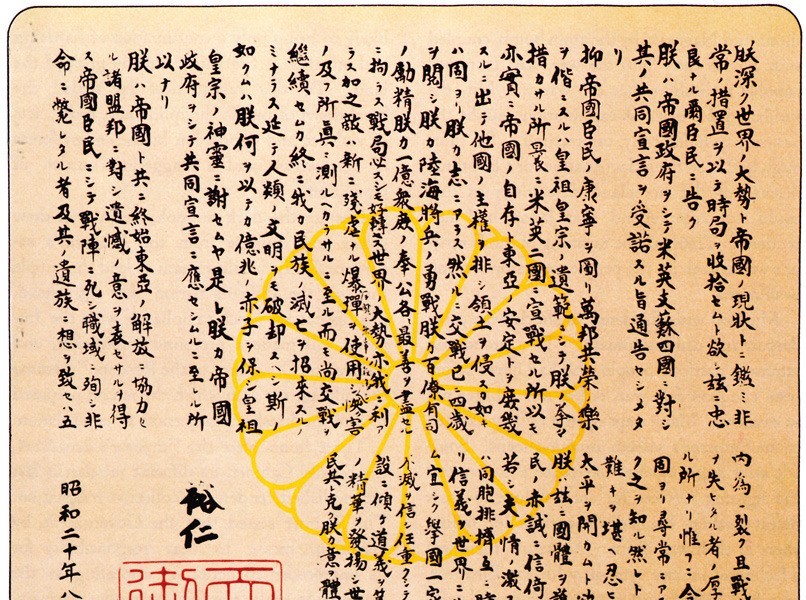 朕深ク世界ノ大勢ト帝國ノ現狀トニ鑑ミ非
常ノ措置ヲ以テ時局ヲ收拾セムト欲シ茲ニ忠
良ナル爾臣民ニ告ク
朕ハ帝國政府ヲシテ米英支蘇四國ニ對シ
其ノ共同宣言ヲ受諾スル旨通告セシメタ
リ
抑〻帝國臣民ノ康寧ヲ圖リ萬邦共榮ノ樂
ヲ偕ニスルハ皇祖皇宗ノ遺範ニシテ朕ノ拳々
措カサル所曩ニ米英二國ニ宣戰セル所以モ
亦實ニ帝國ノ自存ト東亞ノ安定トヲ庶幾
スルニ出テ他國ノ主權ヲ排シ領土ヲ侵スカ如キ
ハ固ヨリ朕カ志ニアラス然ルニ交戰已ニ四歲
ヲ閲シ朕カ陸海將兵ノ勇戰朕カ百僚有司
ノ勵精朕カ一億衆庶ノ奉公各〻最善ヲ盡セル
ニ拘ラス戰局必スシモ好轉セス世界ノ大勢亦我ニ利ア
ラス加之敵ハ新ニ殘虐ナル爆彈ヲ使用シテ慘害
ノ及フ所眞ニ測ルヘカラサルニ至ル而モ尚交戰ヲ
繼續セムカ終ニ我カ民族ノ滅亡ヲ招來スル
ノミナラス延テ人類ノ文明ヲモ破却スヘシ斯ノ
如クムハ朕何ヲ以テカ億兆ノ赤子ヲ保シ皇祖
皇宗ノ神靈ニ謝セムヤ是レ朕カ帝國
政府ヲシテ共同宣言ニ應セシムルニ至レル所
以ナリ
朕ハ帝國ト共ニ終始東亞ノ解放ニ協力セ
ル諸盟邦ニ對シ遺憾ノ意ヲ表セサルヲ得
ス帝國臣民ニシテ戰陣ニ死シ職域ニ殉シ非
命ニ斃レタル者及其ノ遺族ニ想ヲ致セハ五
内爲ニ裂ク且戰
ヲ失ヒタル者ノ厚
ル所ナリ惟フニ今
固ヨリ尋常ニア
ク之ヲ知ル然レト
難キヲ堪ヘ忍ヒ
太平ヲ開カムト
朕ハ茲ニ國體ヲ護
民ノ赤誠ニ信倚
若シ夫レ情ノ激
ハ同胞排擠互ニ時
リ信義ヲ世界ニ
ム宜シク擧國一家
不滅ヲ信シ任重クシテ
設ニ傾ケ道義ヲ
ノ精華ヲ發揚シ世
民其レ克ク朕カ意ヲ體
裕仁
昭和二十年八